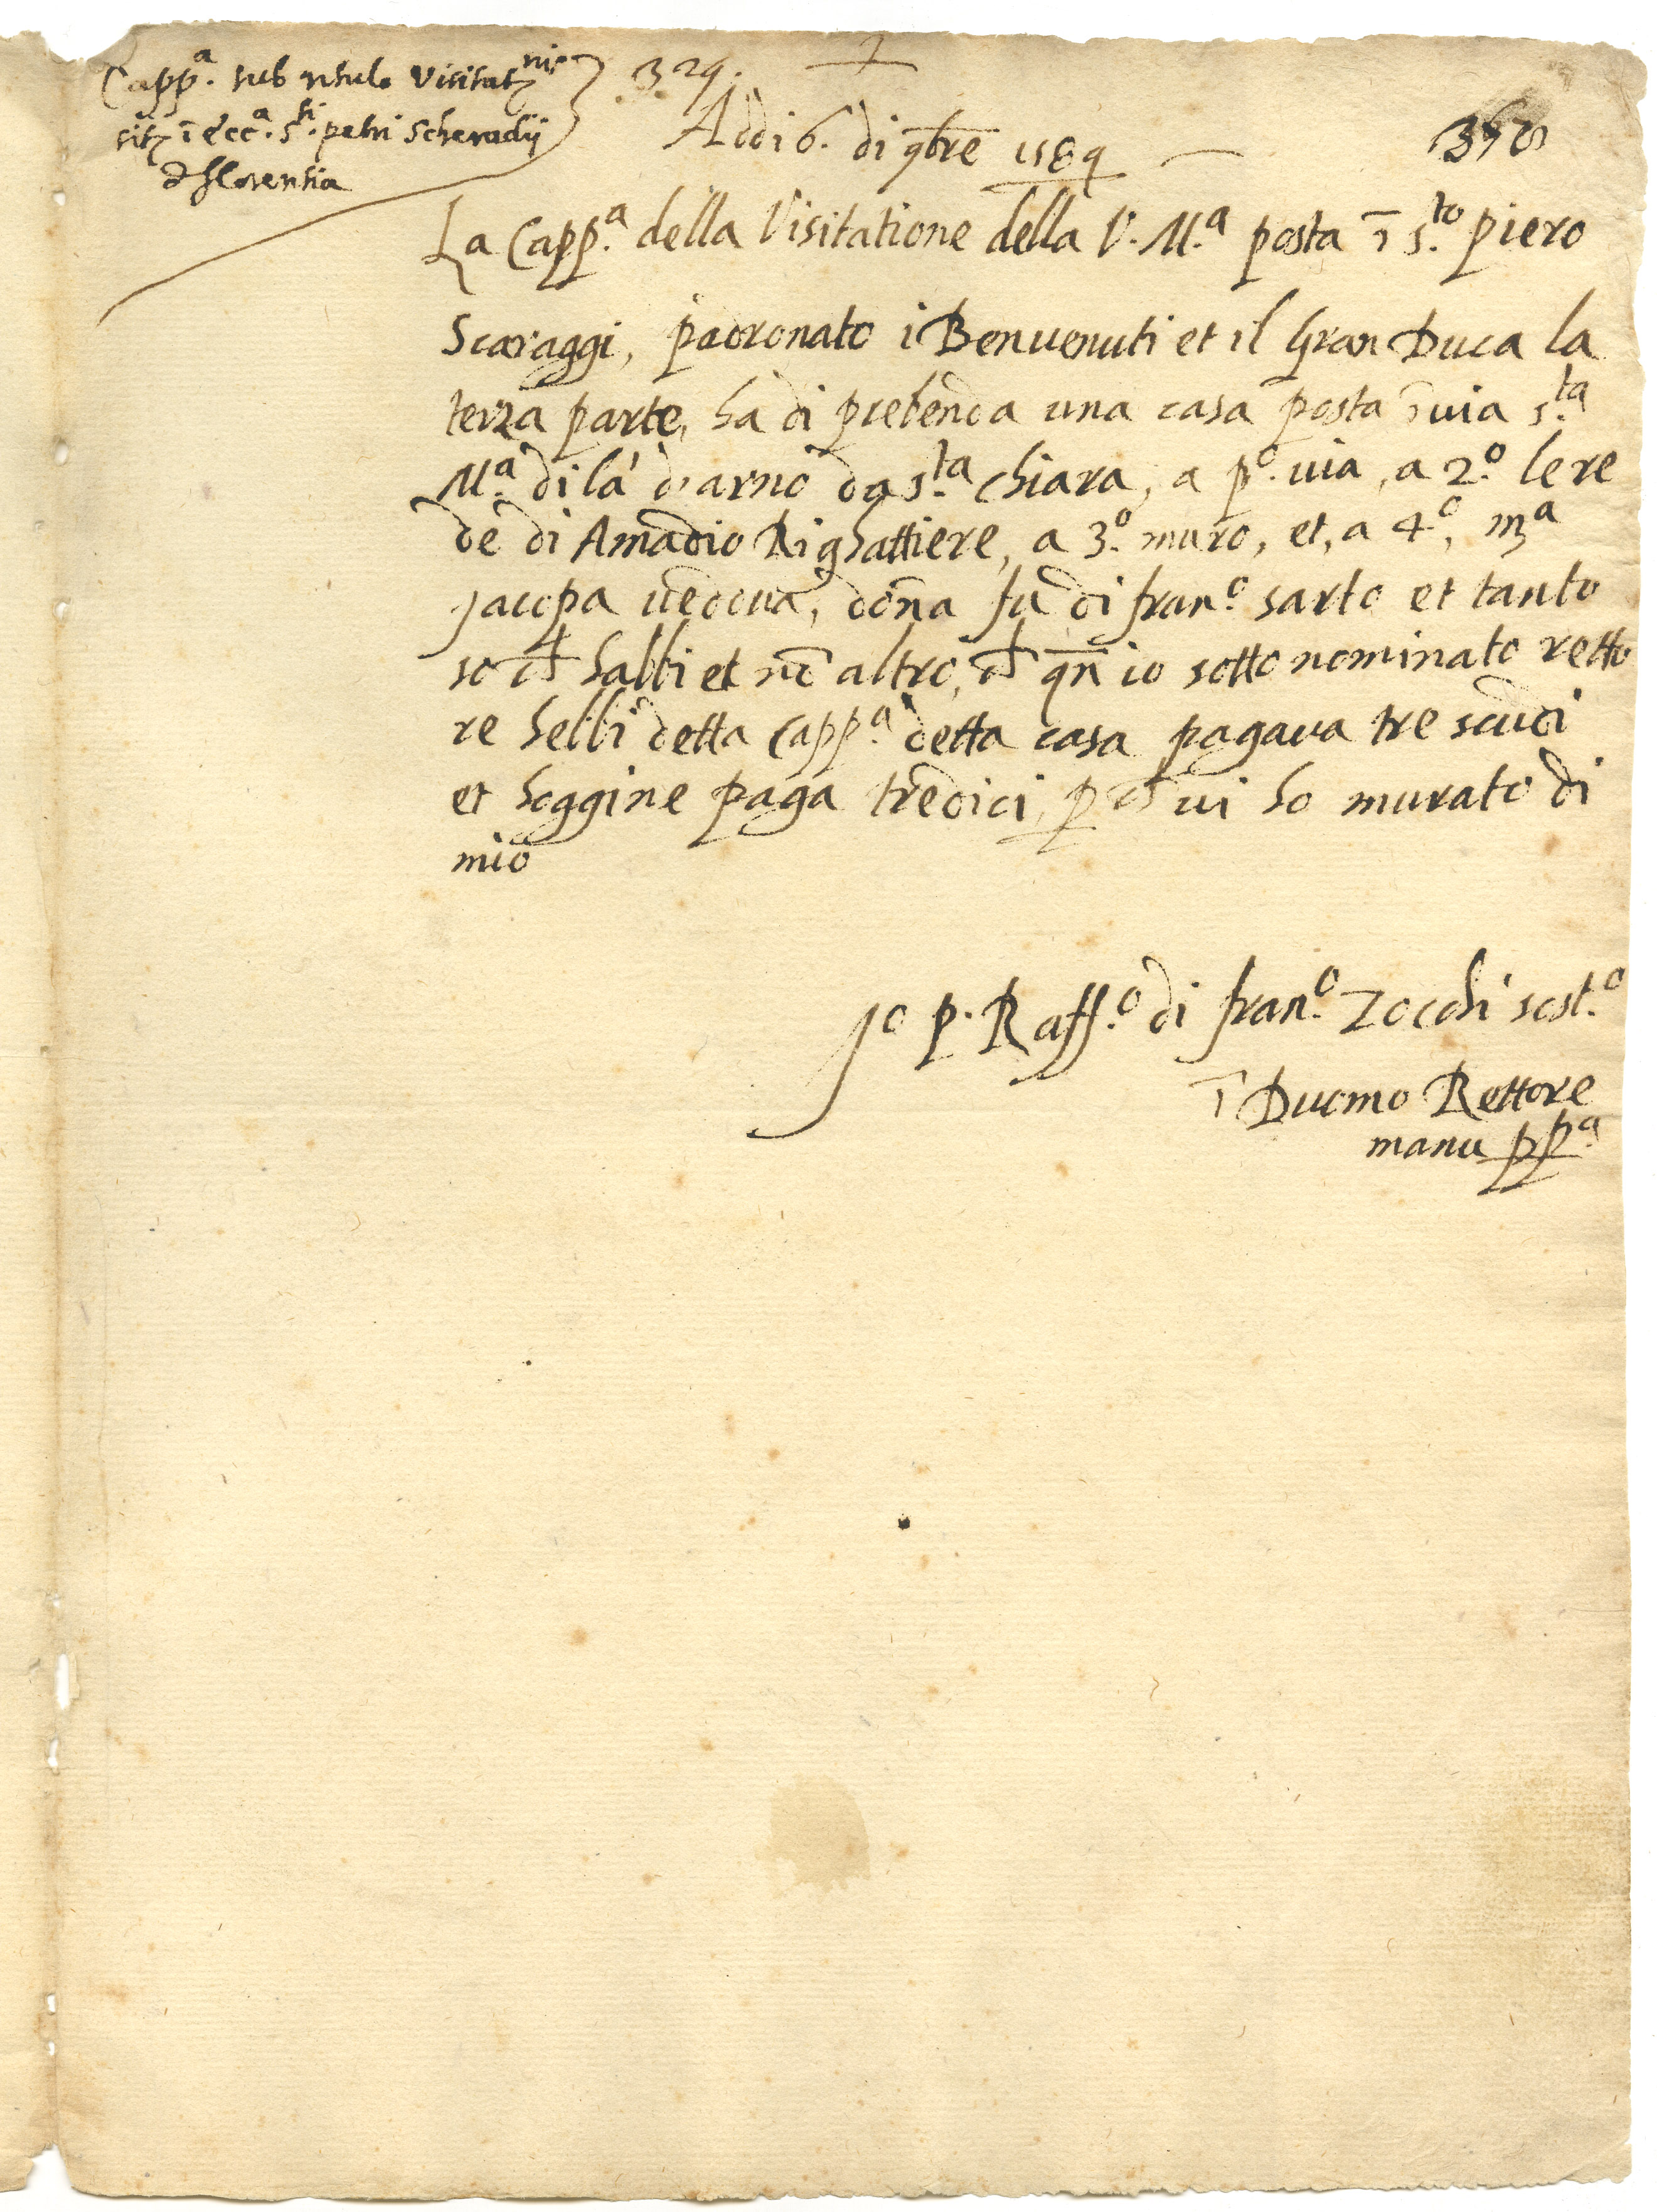 Capp.ª sub titulo Visitatnis
sitȝ ī ecc.ª s.ti petri Scheradij
d florentia
329.
Addi 6. di 9bre 1589
La Capp.ª della Visitatione della V. M.ª posta ī s.to piero
Scaraggi, padronato i Benvenuti et il Gran Duca la
terza parte, ha di prebenda una casa posta ī via s.ta
M.ª di là d'arno da s.ta chiara, a p.º via, a 2.º lere
de di Amadio Righattiere, a 3.º muro, et, a 4.º, mª
Jacopa vēdova, dōna fu di fran.º sarto et tanto
so cħ habbi et nō altro, cħ qn̄ io sotto nominato retto
re hebbi detta Capp.ª detta casa pagava tre scudi
et hoggi ne paga tredici, ꝑ cħ vi ho murato di
mio
Jo P. Raff.º di fran.º Zocchi sost.º
ī Duomo Rettore
manu ppª